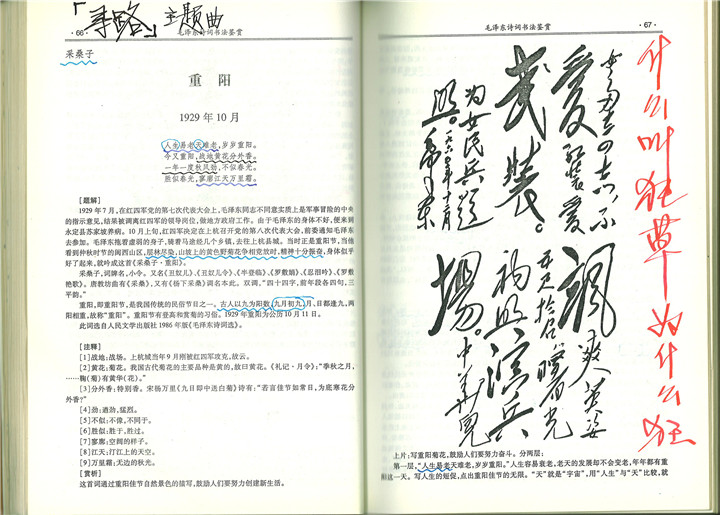 主题曲
· 66 ·
毛泽东诗词书法鉴赏
采桑子
重 阳
1929 年 10 月
人生易老天难老,岁岁重阳。
今又重阳,战地黄花分外香。
一年一度秋风劲,不似春光。
胜似春光,寥廓江天万里霜。
[题解]
1929 年 7 月,在红四军党的第七次代表大会上,毛泽东同志不同意实质上是军事冒险的中央
的指示意见,结果被调离红四军的领导岗位,做地方政府工作。由于毛泽东的身体不好,便来到
永定县苏家坡养病。10 月上旬,红四军决定在上杭召开的第八次代表大会,前委通知毛泽东
去参加。毛泽东拖着虚弱的身子,骑着马途经几个乡镇,去往上杭县城。当时正是重阳节,当他
看到仲秋时节的闽西山区,层林尽染,山坡上的黄色野菊花争相竞放时,精神十分振奋,身体似乎
好了起来,就吟成这首《采桑子·重阳》。
采桑子,词牌名,小令。又名《丑奴儿》、《丑奴儿令》、《半登临》、《罗敷媚》、《忍泪吟》、《罗敷
艳歌》。唐教坊曲有《采桑》,又有《杨下采桑》词名本此。双调,“四十四字,前年段各四句,三
平韵。”
重阳,即重阳节,是我国传统的民俗节日之一。古人以九为阳数,九月初九,月、日都逢九,两
阳相重,故称“重阳”。重阳节有登高和赏菊的习俗。1929 年重阳为公历 10 月 11 日。
此词选自人民文学出版社 1986 年版《毛泽东诗词选》。
[注释]
[1]战地:战场。上杭城当年 9 月刚被红四军攻克,故云。
[2]黄花:菊花。我国古代菊花的主要品种是黄的,故曰黄花。《礼记·月令》:“季秋之月,
……鞠(菊)有黄华(花)。”
[3]分外香:特别香。宋杨万里《九日即中送白菊》诗有:“若言佳节如常日,为底寒花分
外香?”
[4]劲:遒劲,猛烈。
[5]不似:不像,不同于。
[6]胜似:胜于,胜过。
[7]寥廓:空阔的样子。
[8]江天:汀江上的天空。
[9]万里霜:无边的秋光。
[赏析]
这首词通过重阳佳节自然景色的描写,鼓励人们要努力创建新生活。
毛泽东诗词书法鉴赏
· 67 ·
什么叫狂草 为什么狂
飒爽英姿
五尺枪 曙光
初照演兵
场。中华儿
女多奇志 不
爱红装爱
武装。
为女民兵题
照。一九六〇年十二月
毛泽东
上片:写重阳菊花,鼓励人们要努力奋斗。分两层:
第一层,“人生易老天难老,岁岁重阳。”人生容易衰老,老天的发展却不会变老,年年都有重
阳这一天。写人生的短促,点出重阳佳节的无限。“天”就是“宇宙”,用“人生”与“天”比较,就